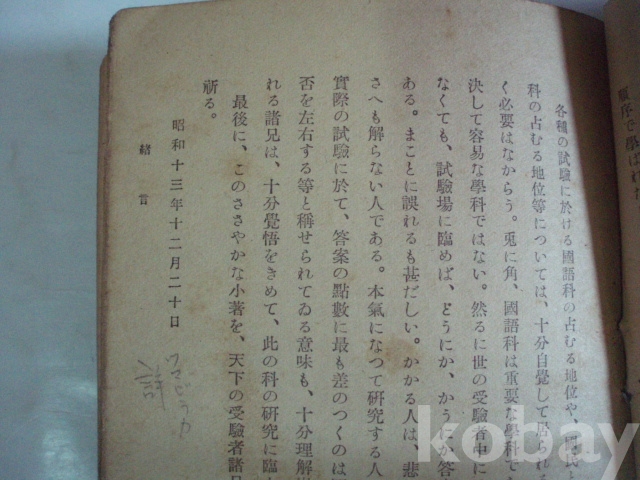 各種の試驗に於ける國語科の占むる地位や、國民と
科の占むる地位等については、十分自覺して居られる
く必要はなからう。兎に角、國語科は重要な學科で
決して容易な學科ではない。然るに世の受驗者中に
なくても、試驗場に臨めば、どうにか、かうにか答
ある。まことに誤れるも甚だしい。かかる人は、悲
さへも解らない人である。本氣になつて硏究する人
實際の試驗に於て、答案の點數に最も差のつくのは
否を左右する等と稱せられてゐる意味も、十分理解
れる諸兄は、十分覺悟をきめて、此の科の硏究に臨
最後に、このささやかな小著を、天下の受驗者諸
祈る。
昭和十三年十二月二十日
緖言
kobay